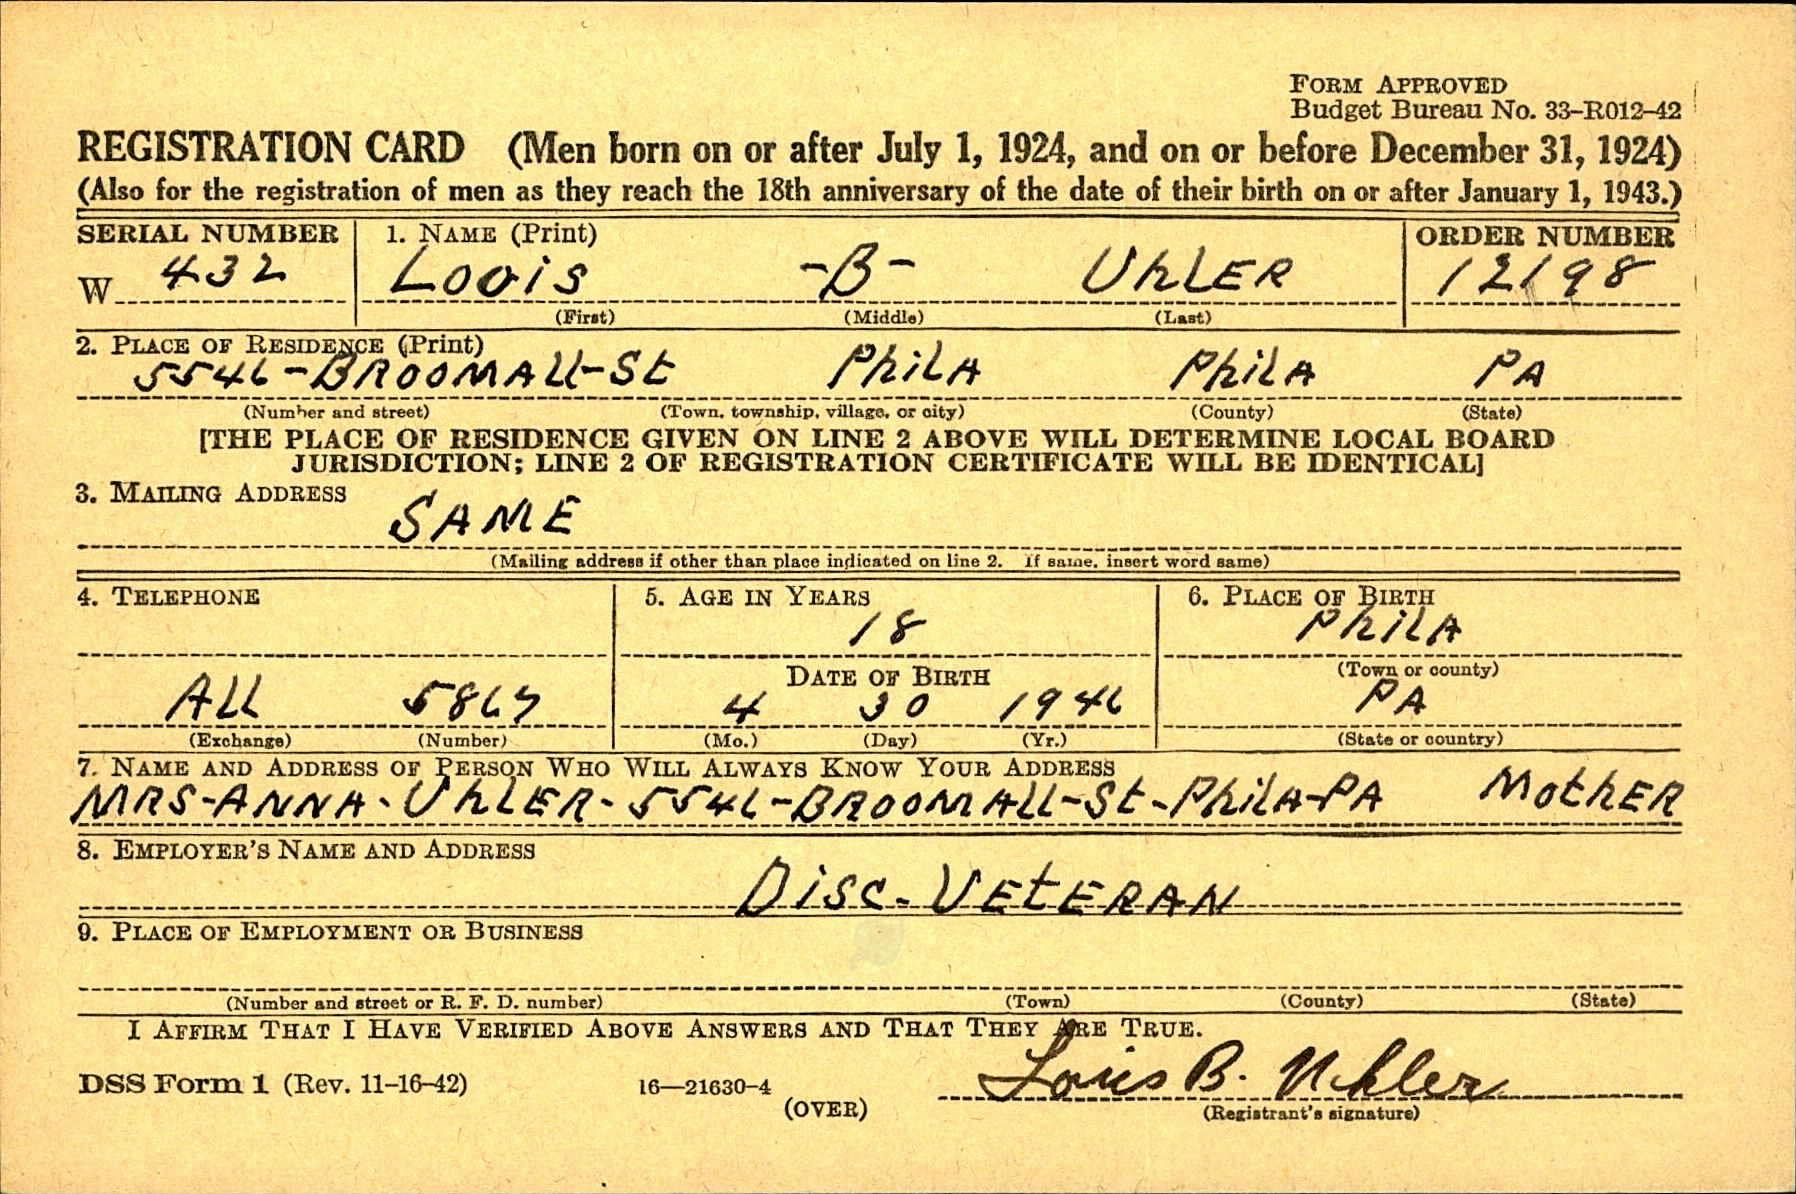 FORM APPROVED
Budget Bureau No. 33–R012–42
REGISTRATION CARD (Men born on or after July 1, 1924, and on or before December 31, 1924)
(Also for the registration of men as they reach the 18th anniversary of the date of their birth on or after January 1, 1943.)
SERIAL NUMBER 1. NAME (Print) ORDER NUMBER
W 432 LOUIS -B- UhLER 12198
(First) (Middle) (Last)
2. PLACE OF RESIDENCE (Print)
5546-BROOMALL-St PhilA PhilA PA
(Number and street) (Town, township, village, or city) (County) (State)
[THE PLACE OF RESIDENCE GIVEN ON LINE 2 ABOVE WILL DETERMINE LOCAL BOARD
JURISDICTION; LINE 2 OF REGISTRATION CERTIFICATE WILL BE IDENTICAL]
3. MAILING ADDRESS
SAME
(Mailing address if other than place indicated on line 2. If same, insert word same)
4. TELEPHONE 5. AGE IN YEARS 6. PLACE OF BIRTH
18 PhilA
DATE OF BIRTH (Town or county)
ALL 5867 4 30 1946 PA
(Exchange) (Number) (Mo.) (Day) (Yr.) (State or country)
7. NAME AND ADDRESS OF PERSON WHO WILL ALWAYS KNOW YOUR ADDRESS
MRS-ANNA-UhLER-5546-BROOMALL-St-PhilA-PA MothER
8. EMPLOYER'S NAME AND ADDRESS
DiSC-VEtERAN
9. PLACE OF EMPLOYMENT OR BUSINESS
(Number and street or R. F. D. number) (Town) (County) (State)
I AFFIRM THAT I HAVE VERIFIED ABOVE ANSWERS AND THAT THEY ARE TRUE.
DSS Form 1 (Rev. 11–16–42) 16—21630-4 Louis B. Uhler
(OVER) (Registrant's signature)